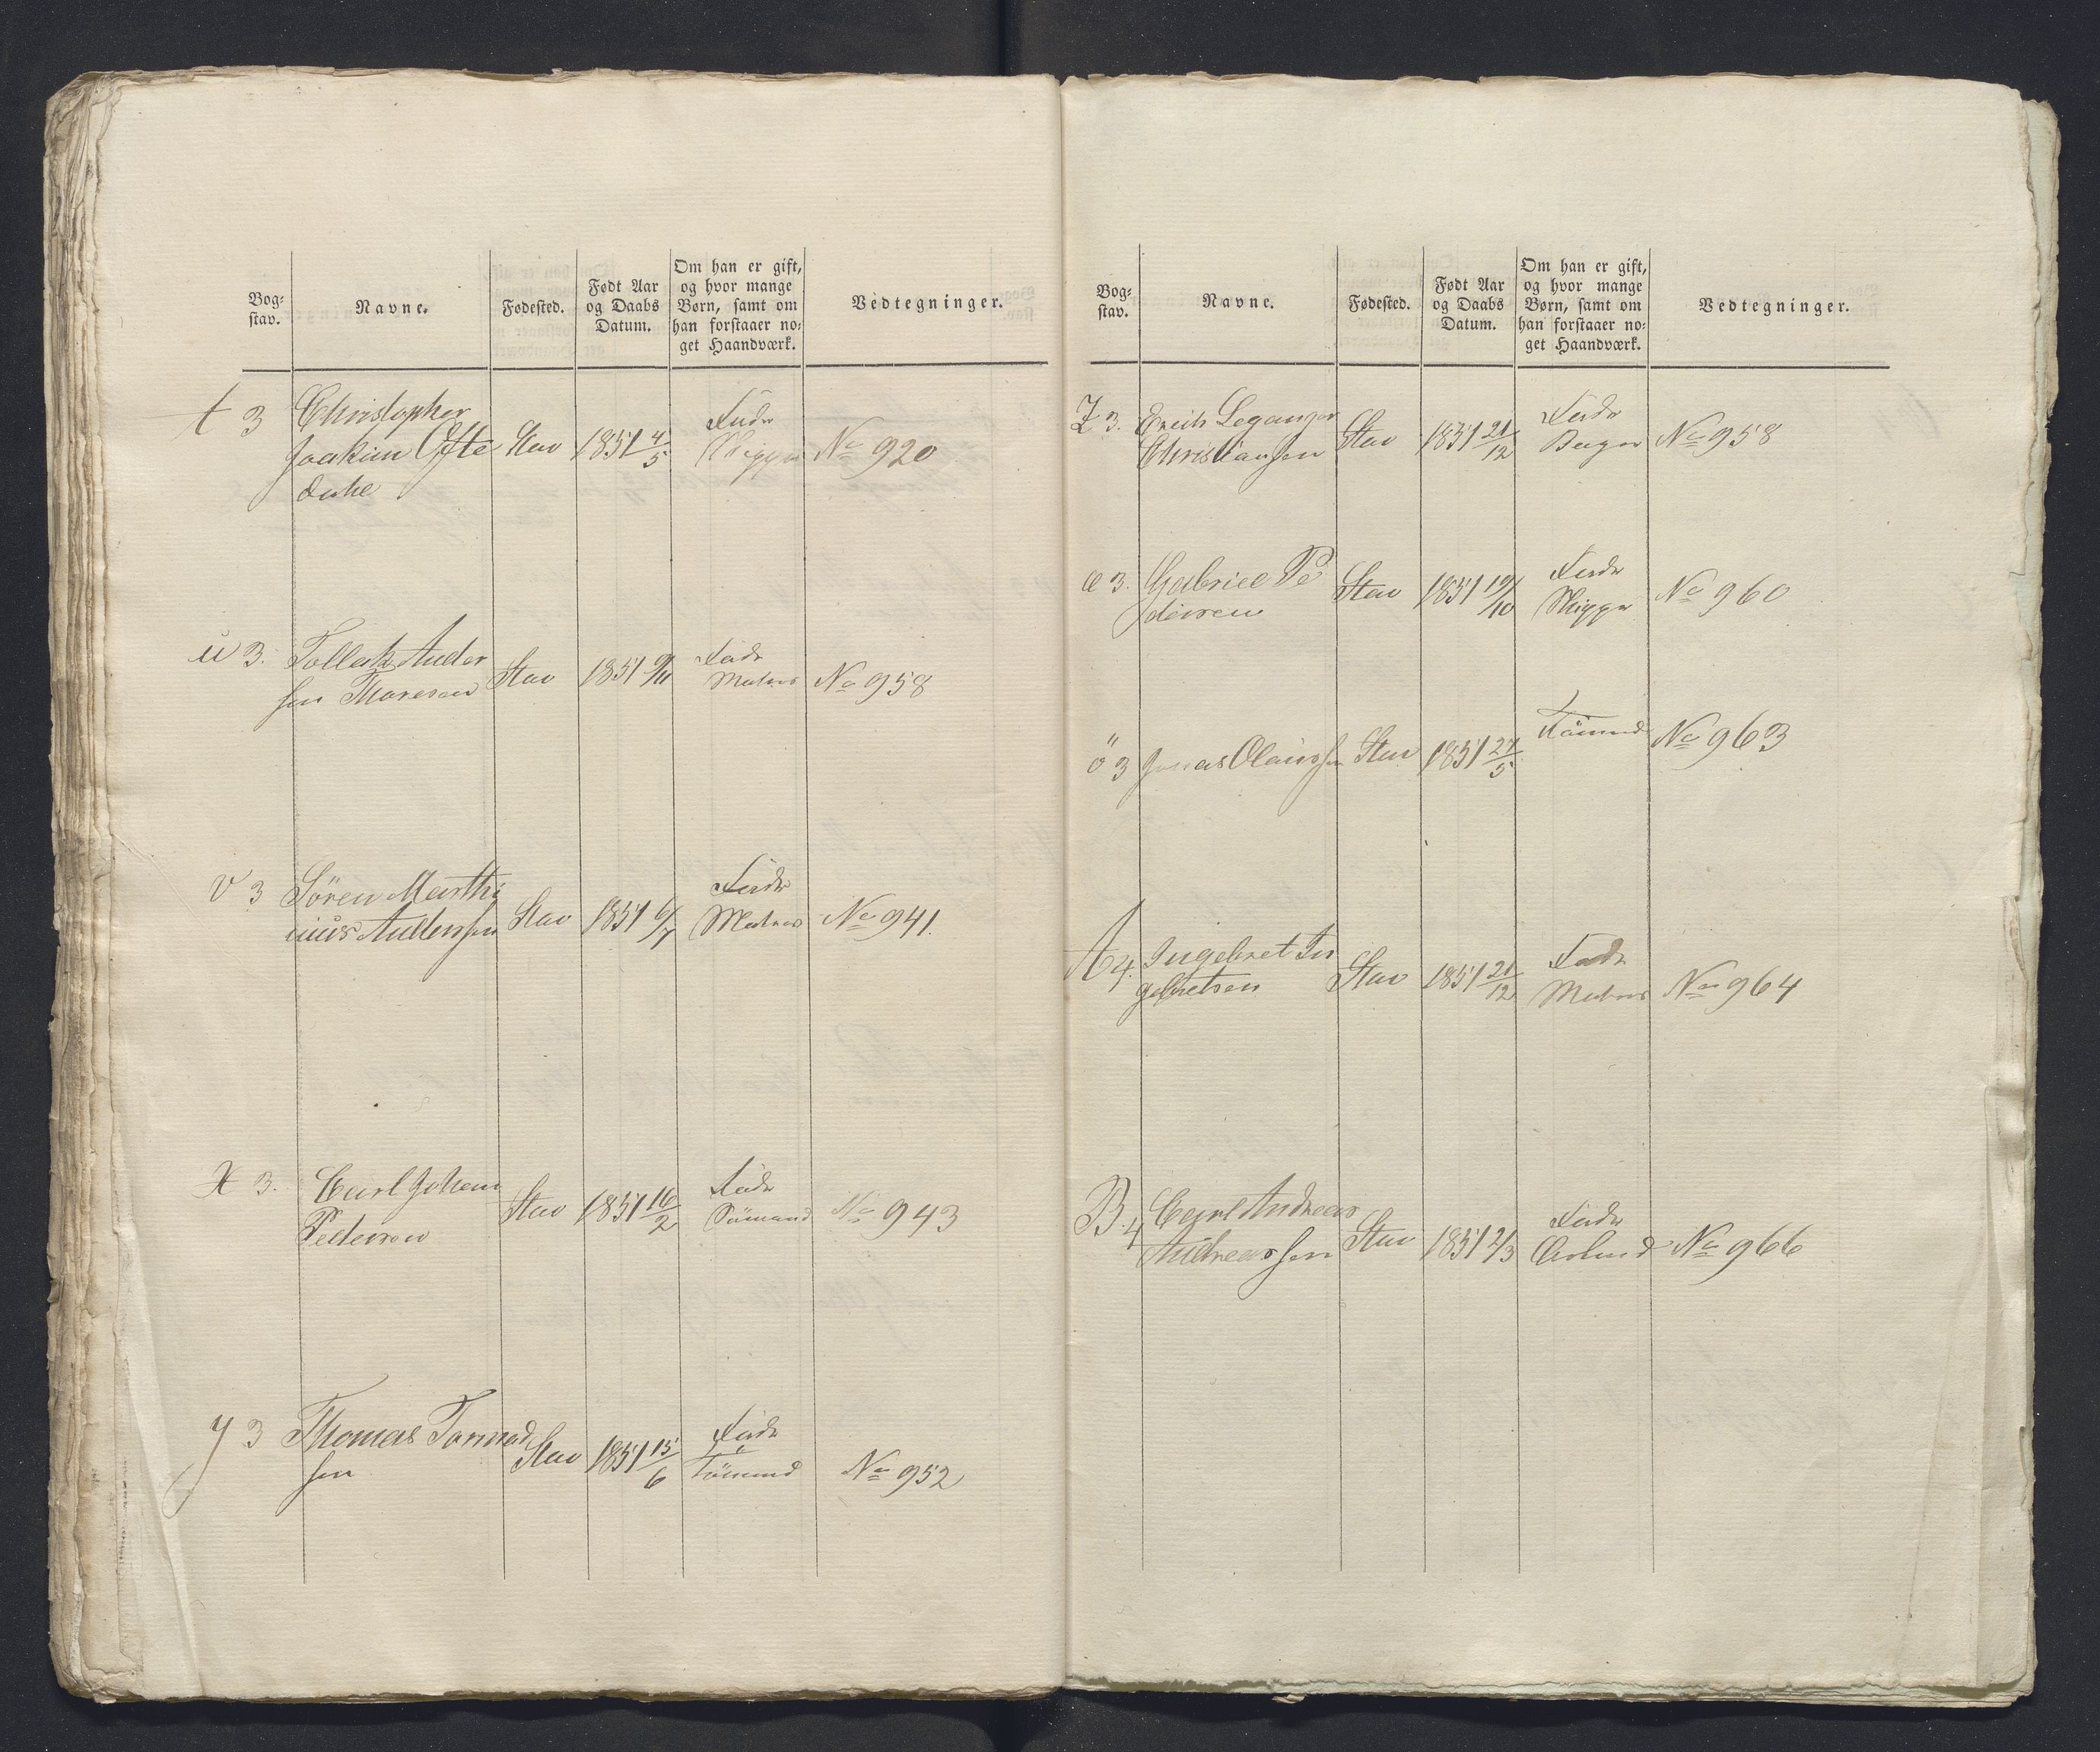 Bog-
stav.
Navne.
Fødested.
Født Aar
og Daabs
Datum.
Om han er gift,
og hvor mange
Børn, samt om
han forstaaer no-
get Haandværk.
Vedtegninger.
t 3 Christopher
Joakim Ofte
dahl
Stav 1851 4/5
Fader
Skipper
No 920
u 3. Tollack Ander
sen Thoresen
Stav 1851 9/11
Fader
Matros
No 958
v 3 Sören Marthi
nius Anderssen
Stav 1851 6/7
Fader
Matros
No 941.
X 3. Carl Johan
Pedersen
Stav 1851 16/2
Fader
Sömand
No 943
y 3 Thomas Tormod
sen
Stav 1851 15/6
Fader
Sömand
No 952
Bog-
stav.
Navne.
Fødested.
Født Aar
og Daabs
Datum.
Om han er gift,
og hvor mange
Børn, samt om
han forstaaer no-
get Haandværk.
Vedtegninger.
Z 3. Erich Leganger
Christiansen
Stav 1851 21/12
Fader
Bager
No 958
æ 3. Gabriel Pe
dersen
Stav 1851 19/10
Fader
Skipper
No 960
ö 3 Jonas Olaussen
Stav 1851 27/5
Sömand
No 963
A 4. Ingebret In
gebretsen
Stav 1851 21/12
Fader
Matros
No 964
B. 4 Carl Andreas
Andreassen
Stav 1851 2/3
Fader
No 966